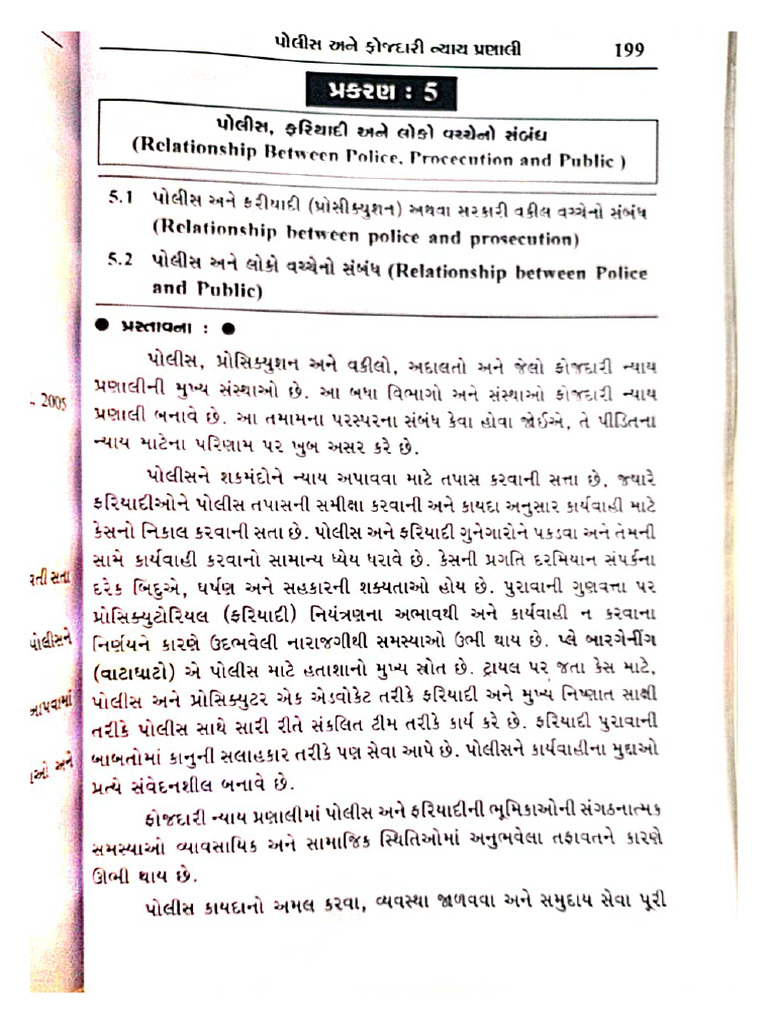 પોલીસ અને ફોજદારી ન્યાય પ્રણાલી 199
પ્રકરણ : 5
પોલીસ, ફરિયાદી અને લોકો વચ્ચેનો સંબંધ
(Relationship Between Police, Procecution and Public )
5.1 પોલીસ અને ફરીયાદી (પ્રોસીક્યુશન) અથવા સરકારી વકીલ વચ્ચેનો સંબંધ
(Relationship between police and prosecution)
5.2 પોલીસ અને લોકો વચ્ચેનો સંબંધ (Relationship between Police
and Public)
● પ્રસ્તાવના : ●
પોલીસ, પ્રોસિક્યુશન અને વકીલો, અદાલતો અને જેલો ફોજદારી ન્યાય
પ્રણાલીની મુખ્ય સંસ્થાઓ છે. આ બધા વિભાગો અને સંસ્થાઓ ફોજદારી ન્યાય
- 2005
પ્રણાલી બનાવે છે. આ તમામના પરસ્પરના સંબંધ કેવા હોવા જોઈએ, તે પીડિતના
ન્યાય માટેના પરિણામ પર ખુબ અસર કરે છે.
પોલીસને શકમંદોને ન્યાય અપાવવા માટે તપાસ કરવાની સત્તા છે, જ્યારે
ફરિયાદીઓને પોલીસ તપાસની સમીક્ષા કરવાની અને કાયદા અનુસાર કાર્યવાહી માટે
કેસનો નિકાલ કરવાની સતા છે. પોલીસ અને ફરિયાદી ગુનેગારોને પકડવા અને તેમની
સામે કાર્યવાહી કરવાનો સામાન્ય ધ્યેય ધરાવે છે. કેસની પ્રગતિ દરમિયાન સંપર્કના
રતી સતા
દરેક બિદુએ, ઘર્ષણ અને સહકારની શક્યતાઓ હોય છે. પુરાવાની ગુણવત્તા પર
પ્રોસિક્યુટોરિયલ (ફરિયાદી) નિયંત્રણના અભાવથી અને કાર્યવાહી ન કરવાના
પોલીસને
નિર્ણયને કારણે ઉદભવેલી નારાજગીથી સમસ્યાઓ ઉભી થાય છે. પ્લે બારગેનીંગ
(વાટાઘાટો) એ પોલીસ માટે હતાશાનો મુખ્ય સ્રોત છે. ટ્રાયલ પર જતા કેસ માટે,
આપવામાં
પોલીસ અને પ્રોસિક્યુટર એક એડવોકેટ તરીકે ફરિયાદી અને મુખ્ય નિષ્ણાત સાક્ષી
તરીકે પોલીસ સાથે સારી રીતે સંકલિત ટીમ તરીકે કાર્ય કરે છે. ફરિયાદી પુરાવાની
ઓ અને
બાબતોમાં કાનુની સલાહકાર તરીકે પણ સેવા આપે છે. પોલીસને કાર્યવાહીના મુદ્દાઓ
પ્રત્યે સંવેદનશીલ બનાવે છે.
ફોજદારી ન્યાય પ્રણાલીમાં પોલીસ અને ફરિયાદીની ભૂમિકાઓની સંગઠનાત્મક
સમસ્યાઓ વ્યાવસાયિક અને સામાજિક સ્થિતિઓમાં અનુભવેલા તફાવતને કારણે
ઊભી થાય છે.
પોલીસ કાયદાનો અમલ કરવા, વ્યવસ્થા જાળવવા અને સમુદાય સેવા પૂરી